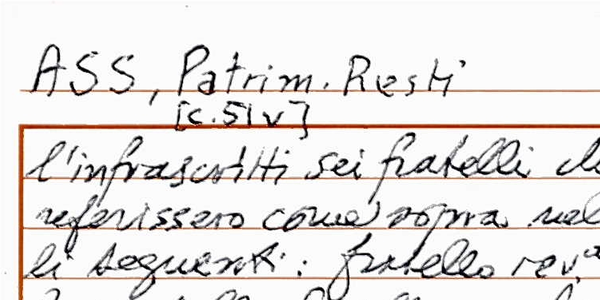 ASS, Patrim. Resti
[c. 51v]
l'infrascritti sei fratelli
referissero come sopra nel
li seguenti: fratello rev.